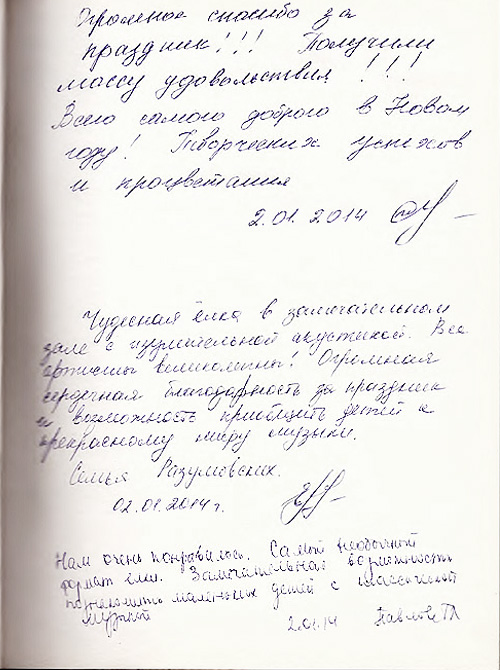 Огромное спасибо за
праздник!!! Получили
массу удовольствия!!!
Всего самого доброго в Новом
году! Творческих успехов
и процветания
2.01.2014
Чудесная ёлка в замечательном
зале с изумительной акустикой. Все
артисты великолепны! Огромная
сердечная благодарность за праздник
и возможность приобщить детей к
прекрасному миру музыки.
Семья Разумовских.
02.01.2014 г.
Нам очень понравилось. Самый необычный
формат ёлки. Замечательная возможность
познакомить маленьких детей с классической
музыкой
2.01.14 Павлова